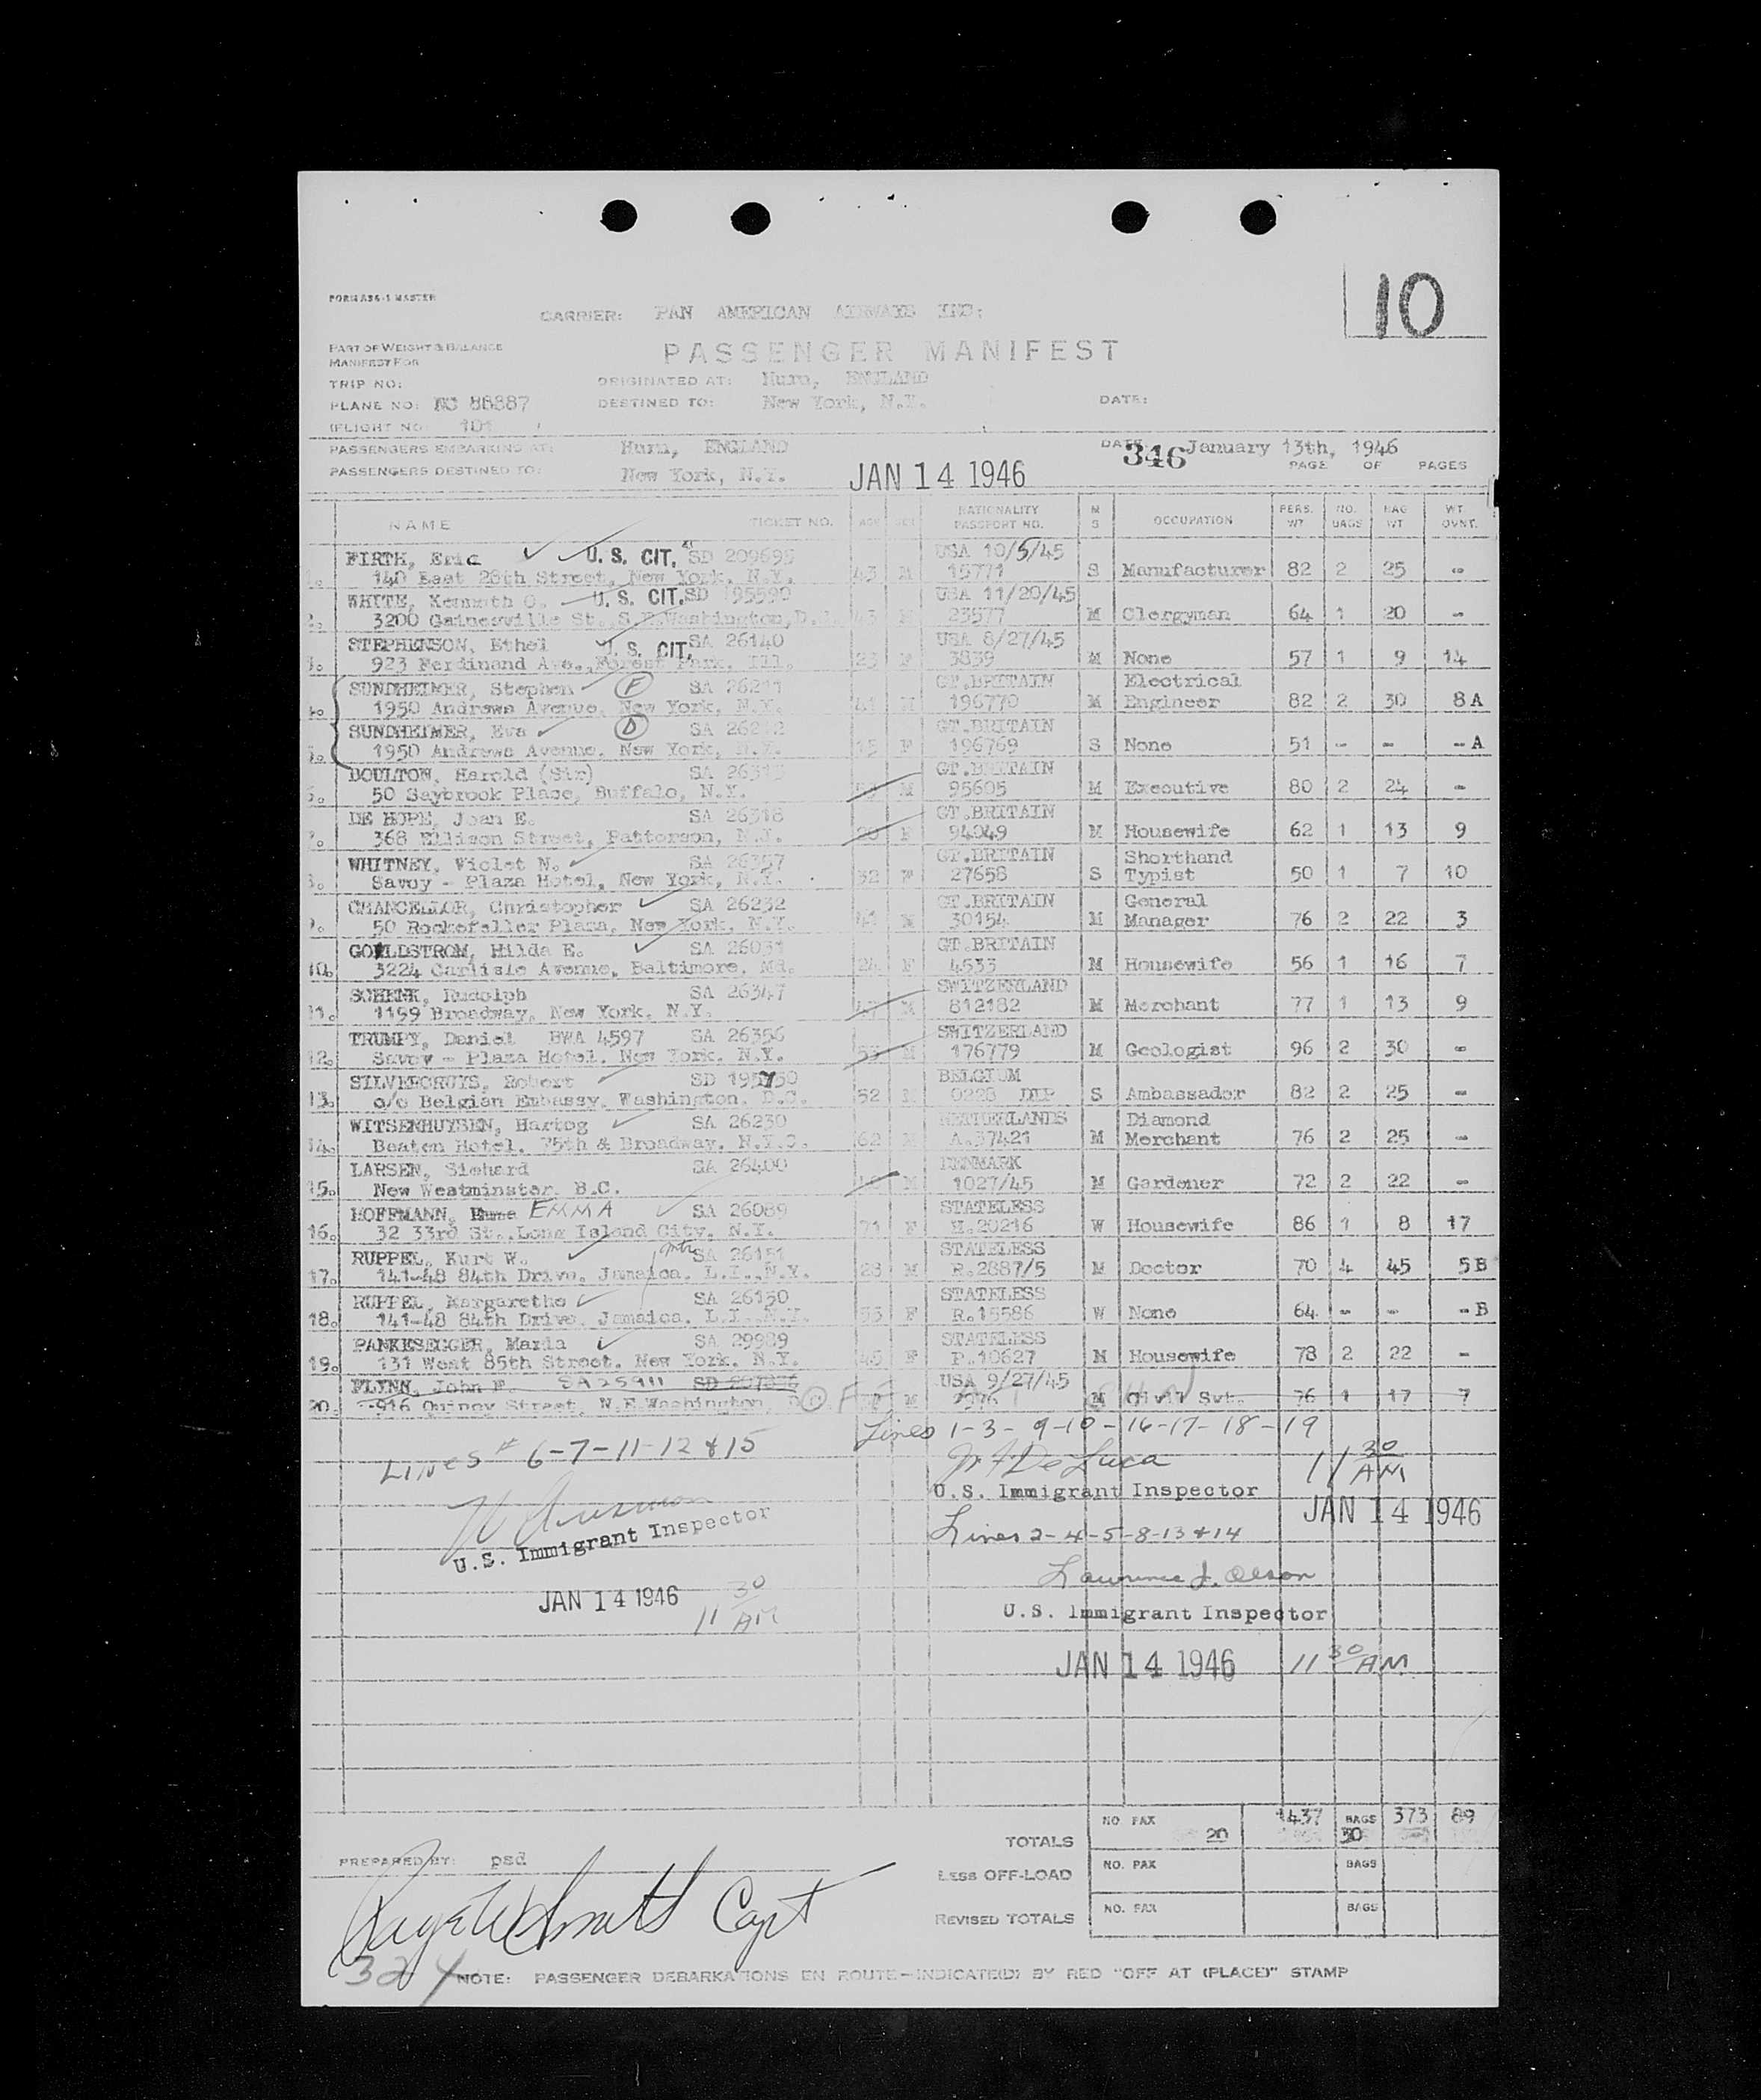 10
FORM A36-1 MASTER
CARRIER: PAN AMERICAN AIRWAYS INC:
PART OF WEIGHT & BALANCE
MANIFEST FOR
PASSENGER MANIFEST
TRIP NO:
ORIGINATED AT: Hurn, ENGLAND
PLANE NO: NC 88887
DESTINED TO: New York, N.Y.
DATE:
(FLIGHT NO 101 )
PASSENGERS EMBARKING AT: Hurn, ENGLAND
DATE: January 13th, 1946
346
PASSENGERS DESTINED TO: New York, N.Y.
JAN 14 1946
PAGE OF PAGES
NAME TICKET NO. AGE SEX NATIONALITY PASSPORT NO. M S OCCUPATION PERS. WT NO. BAGS BAG WT WT. OVNT.
FIRTH, Eric U. S. CIT. SD 209695 USA 10/5/45
1. 140 East 28th Street, New York, N.Y. 43 M 15771 S Manufacturer 82 2 25 -
WHITE, Kenneth O. U. S. CIT. SD 195590 USA 11/20/45
2. 3200 Gainesville St., S.E. Washington, D. 43 M 23577 M Clergyman 64 1 20 -
STEPHENSON, Ethel U. S. CIT. SA 26140 USA 8/27/45
3. 923 Ferdinand Ave., Forest Park, Ill. 23 F 3839 M None 57 1 9 14
SUNDHEIMER, Stephen F SA 26211 GT.BRITAIN Electrical
4. 1950 Andrews Avenue, New York, N.Y. 41 M 196770 M Engineer 82 2 30 8 A
SUNDHEIMER, Eva D SA 26212 GT.BRITAIN
5. 1950 Andrews Avenue, New York, N.Y. 15 F 196769 S None 51 - - - A
DOULTON, Harold (Sir) SA GT.BRITAIN
6. 50 Saybrook Place, Buffalo, N.Y. M 95605 M Executive 80 2 24 -
DE HOPE, Joan E. SA 26318 GT.BRITAIN
7. 368 Ellison Street, Patterson, N.J. 20 F 94049 M Housewife 62 1 13 9
WHITNEY, Violet N. SA 26357 GT.BRITAIN Shorthand
8. Savoy - Plaza Hotel, New York, N.Y. 32 F 27658 S Typist 50 1 7 10
CHANCELLOR, Christopher SA 26232 GT.BRITAIN General
9. 50 Rockefeller Plaza, New York, N.Y. 41 M 30154 M Manager 76 2 22 3
GOELDSTROM, Hilda E. SA 26031 GT.BRITAIN
10. 3224 Carlisle Avenue, Baltimore, Md. 24 F 4533 M Housewife 56 1 16 7
SCHENK, Rudolph SA 26347 SWITZERLAND
11. 1199 Broadway, New York, N.Y. 47 M 812182 M Merchant 77 1 13 9
TRUMPY, Daniel BWA 4597 SA 26356 SWITZERLAND
12. Savoy - Plaza Hotel, New York, N.Y. 53 M 176779 M Geologist 96 2 30 -
SILVERCRUYS, Robert SD 195750 BELGIUM
13. c/o Belgian Embassy, Washington, D.C. 52 M 0228 DIP S Ambassador 82 2 25 -
WITSENHUYSEN, Hartog SA 26230 NETHERLANDS Diamond
14. Beaten Hotel, 75th & Broadway, N.Y.C. 62 M A.37421 M Merchant 76 2 25 -
LARSEN, Sichard SA 26400 DENMARK
15. New Westminster, B.C. M 1027/45 M Gardener 72 2 22 -
HOFFMANN, EMMA SA 26089 STATELESS
16. 32 33rd St., Long Island City, N.Y. 71 F H.20216 W Housewife 86 1 8 17
RUPPEL, Kurt W. SA 26151 STATELESS
17. 141-48 84th Drive, Jamaica, L.I., N.Y. 28 M R.2887/5 M Doctor 70 4 45 5 B
RUPPEL, Margarethe SA 26150 STATELESS
18. 141-48 84th Drive, Jamaica, L.I., N.Y. 53 F R.15586 W None 64 - - - B
PANKESEGGER, Maria SA 29989 STATELESS
19. 131 West 85th Street, New York, N.Y. 45 F P.10627 M Housewife 78 2 22 -
FLYNN, John F. SA 25911 SD USA 9/27/45
20. 916 Quincy Street, N.E. Washington, M M Civil Svt. 76 1 17 7
Lines 1-3-9-10-16-17-18-19
LINES # 6-7-11-12 & 15
De Luca
11 30 AM
U.S. Immigrant Inspector
JAN 14 1946
Lines 2-4-5-8-13 & 14
U.S. Immigrant Inspector
Lawrence J. Olson
JAN 14 1946
11 30 AM
U.S. Immigrant Inspector
JAN 14 1946 11 30 AM
NO PAX 1437 BAGS 373 89
TOTALS 20 30
PREPARED BY: psd
LESS OFF-LOAD NO. PAX BAGS
Capt
REVISED TOTALS NO. PAX BAGS
324
NOTE: PASSENGER DEBARKATIONS EN ROUTE-INDICATE(D) BY RED "OFF AT (PLACE)" STAMP